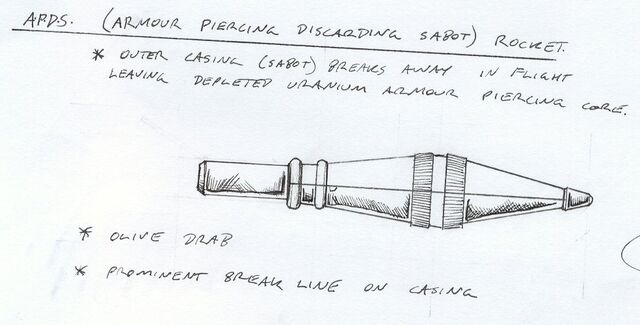 A.P.D.S. (ARMOUR PIERCING DISCARDING SABOT) ROCKET.
* OUTER CASING (SABOT) BREAKS AWAY IN FLIGHT
LEAVING DEPLETED URANIUM ARMOUR PIERCING CORE.
* OLIVE DRAB
* PROMINENT BREAK LINE ON CASING